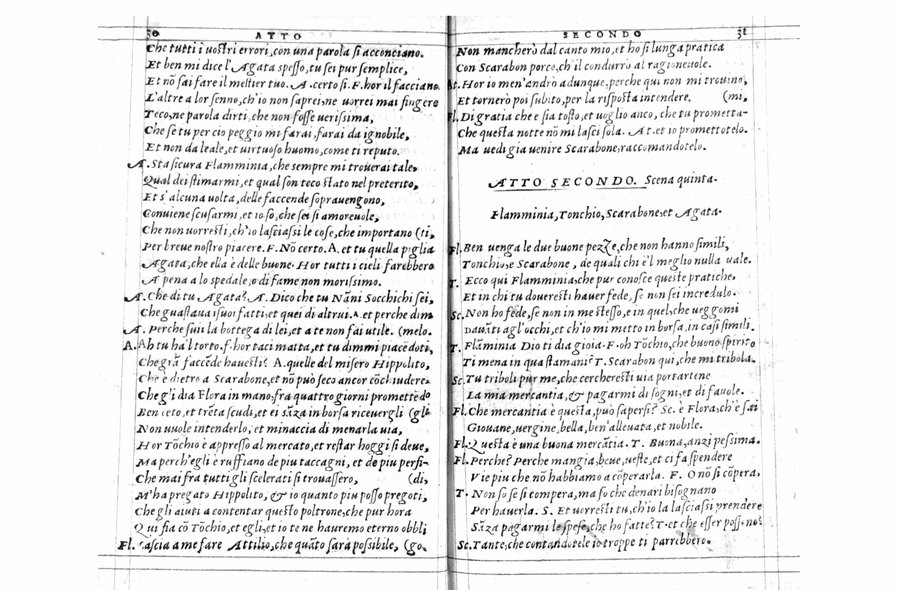 30 ATTO
Che tutti i uostri errori, con una parola si acconciano.
Et ben mi dice l'Agata spesso, tu sei pur semplice,
Et nõ sai fare il mestier tuo. A. certo si. F. hor il facciano
L'altre a lor senno, ch'io non saprei, ne uorrei mai fingere
Teco, ne parola dirti, che non fosse uerissima,
Che se tu per cio peggio mi farai, farai da ignobile,
Et non da leale, et uirtuoso huomo, come ti reputo.
A. Sta sicura Flamminia, che sempre mi trouerai tale,
Qual dei stimarmi, et qual son teco stato nel preterito,
Et s'alcuna uolta, delle faccende soprauengono,
Conuiene scusarmi, et io so, che sei sì amoreuole,
Che non uorresti, ch'io lasciassi le cose, che importano (ti,
Per breue nostro piacere. F. Nõ certo. A. et tu quella piglia
Agata, che ella è delle buone. Hor tutti i cieli farebbero
A pena a lo spedale, o di fame non morissimo.
A. Che di tu Agata? A. Dico che tu Nãni Socchichi sei,
Che guastaua i suoi fatti, et quei di altrui. A. et perche dim
A. Perche suii la bottega di lei, et a te non fai utile. (melo.
A. Ah tu ha'l torto. f. hor taci matta, et tu dimmi piacẽdoti,
Che grã faccẽde hauesti? A. quelle del misero Hippolito,
Che è dietro a Scarabone, et nõ può seco ancor cõchiudere.
Che gli dia Flora in mano, fra quattro giorni promettẽdo
Ben cẽto, et trẽta scudi, et ei sãza in borsa riceuergli (gli
Non uuole intenderlo, et minaccia di menarla uia,
Hor Tõchio è appresso al mercato, et restar hoggi si deue,
Ma perch'egli è ruffiano de piu taccagni, et de piu perfi-
Che mai fra tutti gli scelerati si trouassero, (di,
M'ha pregato Hippolito, & io quanto piu posso pregoti,
Che gli aiuti a contentar questo poltrone, che pur hora
Qui sia cõ Tõchio, et egli, et io te ne hauremo eterno obbli
Fl. Lascia a me fare Attilio, che quãto sarà possibile, (go.
SECONDO 31
Non mancherò dal canto mio, et ho sì lunga pratica
Con Scarabon porco, ch'il condurrò al ragioneuole.
At. Hor io men'andrò adunque, perche qui non mi trouino,
Et tornerò poi subito, per la risposta intendere. (mi,
Fl. Di gratia che e sia tosto, et uoglio anco, che tu prometta-
Che questa notte nõ mi lasci sola. At. et io promettotelo.
Ma uedi già uenire Scarabone, raccomandotelo.
ATTO SECONDO. Scena quinta.
Flamminia, Tonchio, Scarabone, et Agata.
Fl. Ben uenga le due buone pezze, che non hanno simili,
Tonchio, e Scarabone, de quali chi è'l meglio nulla uale.
T. Ecco qui Flamminia, che pur conosce queste pratiche,
Et in chi tu doueresti hauer fede, se non sei incredulo.
Sc. Non ho fede, se non in me stesso, e in quel, che ueggomi
Dauãti agl'occhi, et ch'io mi metto in borsa, in casi simili.
T. Flãminia Dio ti dia gioia. F. oh Tõchio, che buono spirito
Ti mena in qua stamani? T. Scarabon qui, che mi tribola.
Sc. Tu triboli pur me, che cercheresti uia portartene
La mia mercantia, & pagarmi di sogni, et di fauole.
Fl. Che mercantia è questa, può sapersi? Sc. è Flora, ch'è sai
Giouane, uergine, bella, ben'alleuata, et nobile.
Fl. Questa è una buona mercãtia. T. Buona, anzi pessima.
Fl. Perche? Perche mangia, beue, ueste, et ci fa spendere
Vie piu che nõ habbiamo a cõperarla. F. O nõ si cõpera,
T. Non so se si compera, ma so che denari bisognano
Per hauerla. S. Et uorresti tu, ch'io la lasciassi prendere
Sãza pagarmi le spese, che ho fatte? T. et che esser posson?
Sc. Tante, che contandotele io troppe ti parrebbero.